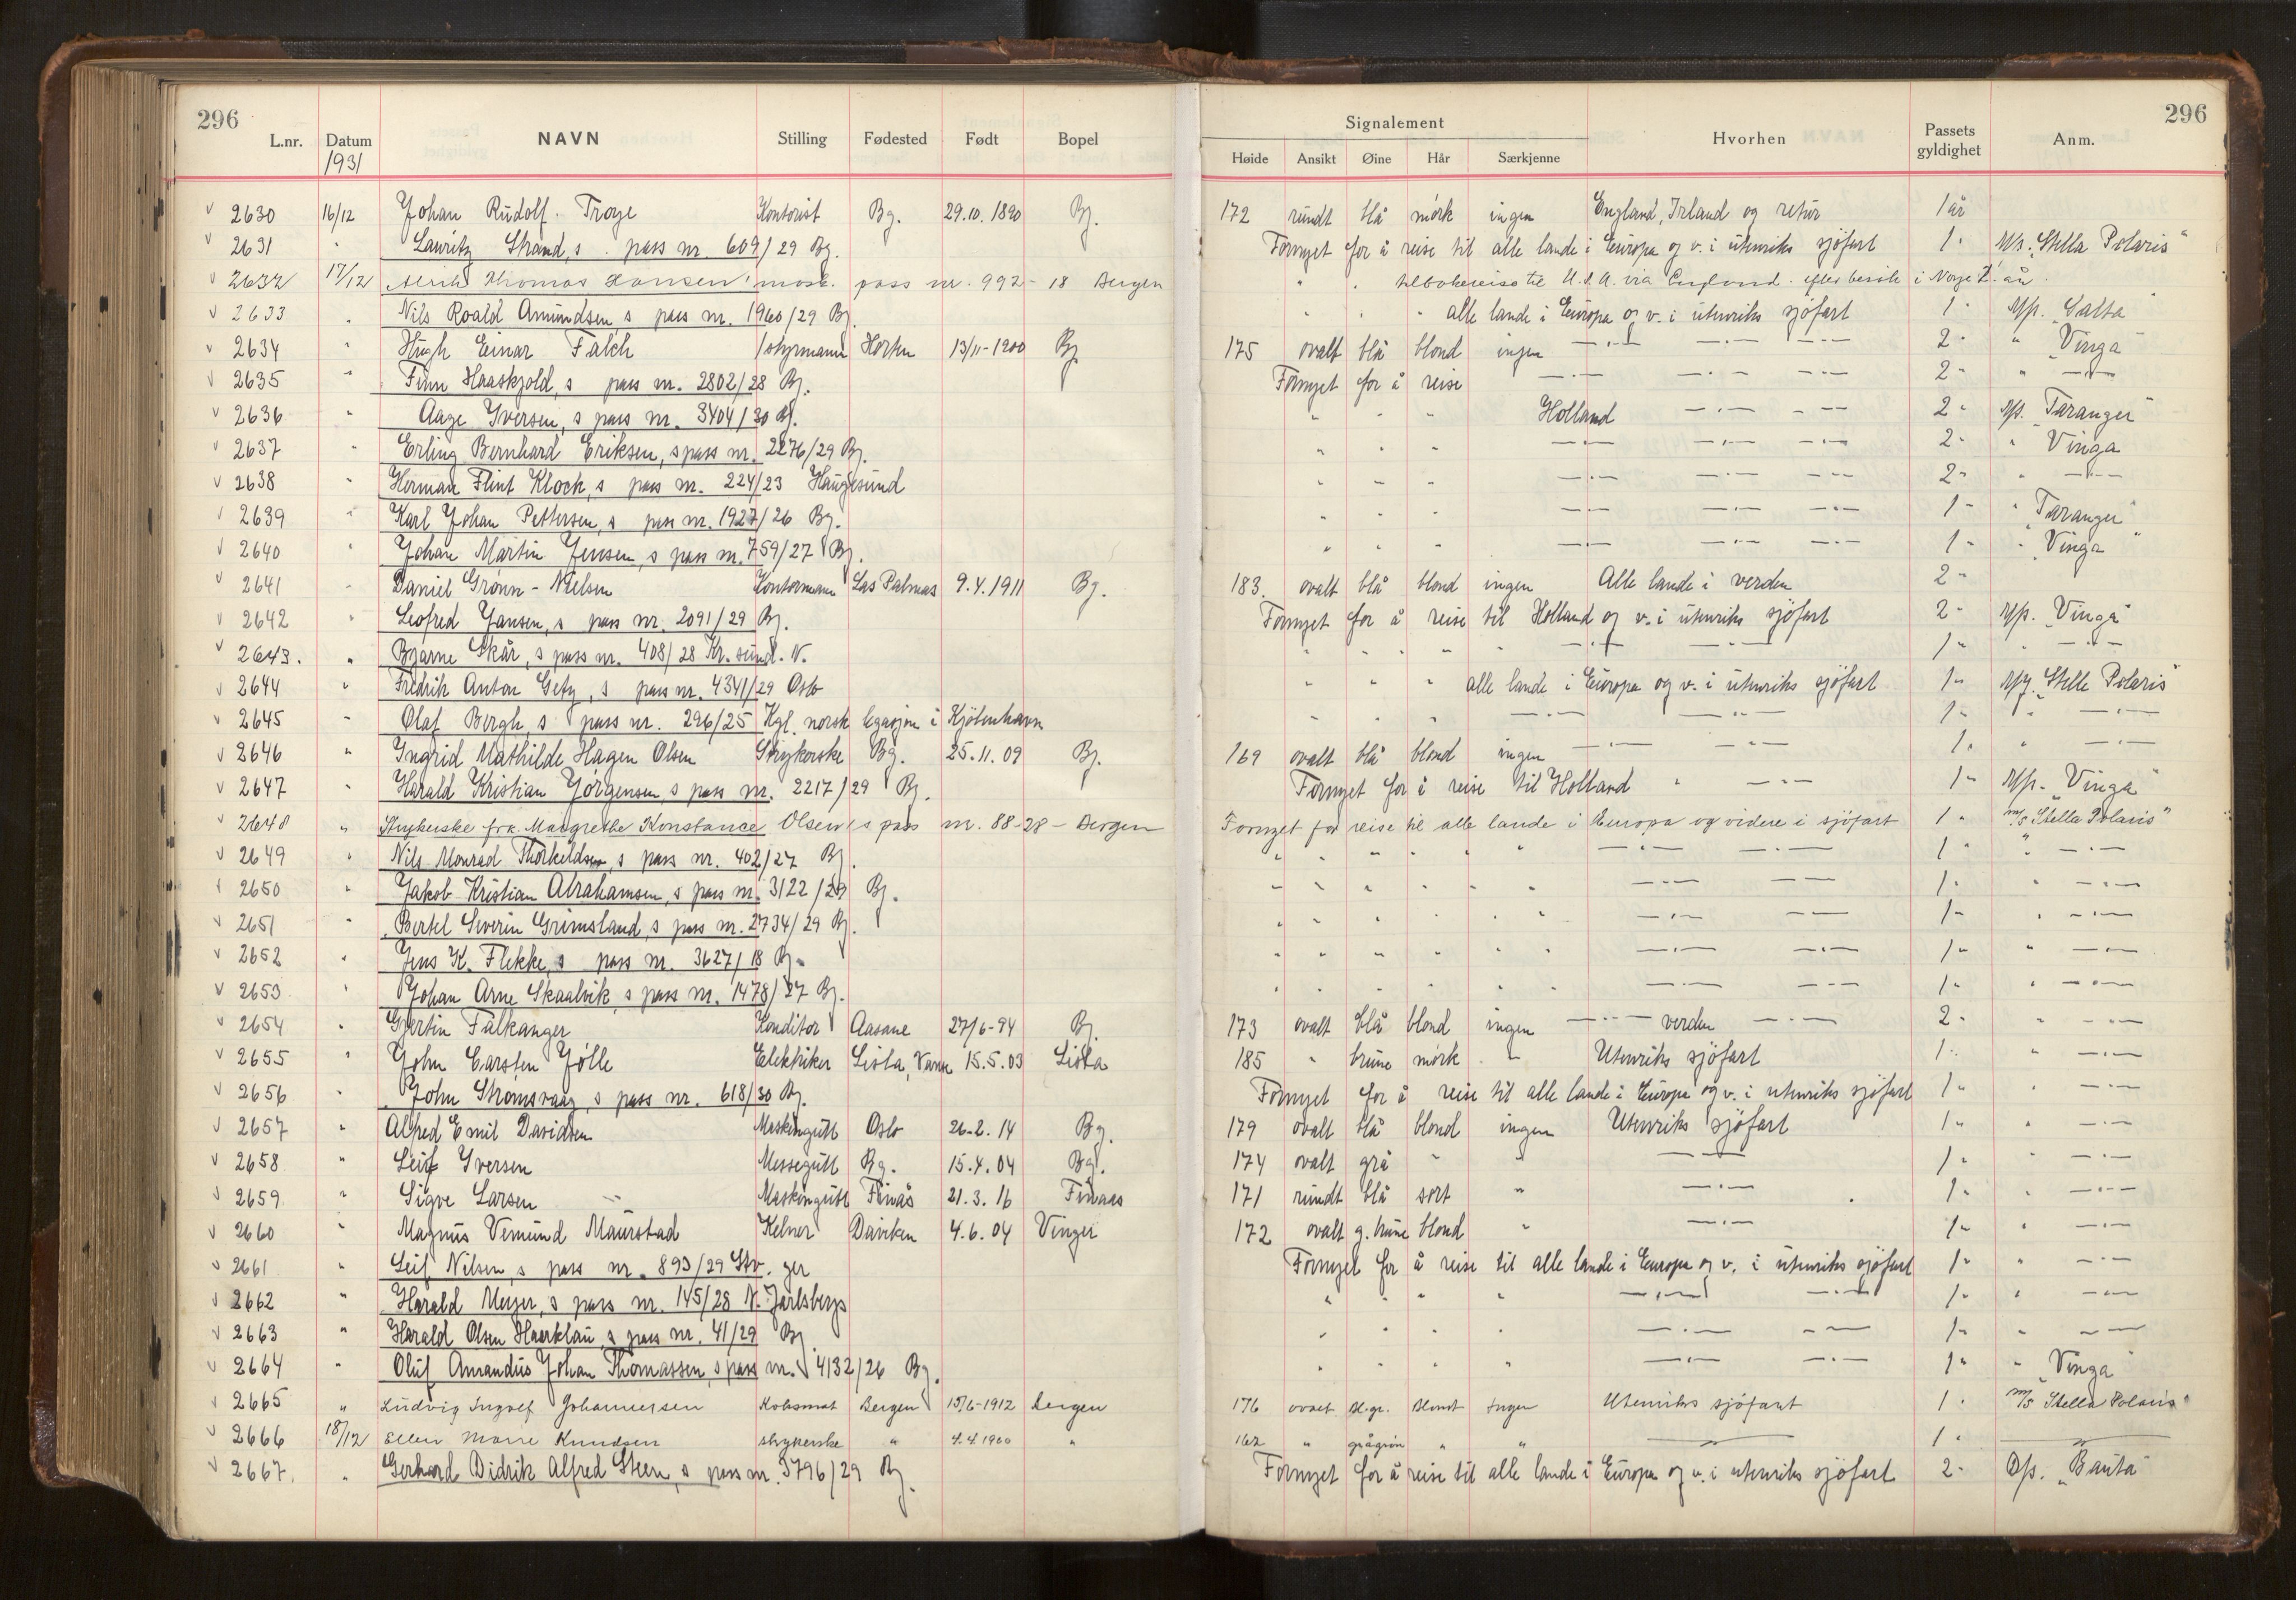 296 296
L.nr. Datum NAVN Stilling Fødested Født Bopel Signalement Hvorhen Passets gyldighet Anm.
1931 Høide Ansikt Øine Hår Særkjenne
v 2630 16/12 Johan Rudolf Troye Kontorist Bg. 29.10.1890 Bg. 172 rundt blå mörk ingen England, Irland og retur 1 år
v 2631 " Lauritz Strand, s. pass nr. 609/29 Bg. Fornyet for å reise til alle lande i Europa og v. i utenriks sjöfart 1 " M/s. "Stella Polaris"
v 2632 17/12 Thomas Hansen pass nr. 992 - 18 Bergen " " tilbakereise til U.S.A. via England efter besök i Norge 1 år.
v 2633 " Nils Roald Amundsen, s pass nr. 1960/29 Bg. " " " alle lande i Europa og v. i utenriks sjöfart 1 M/s.
v 2634 " Hugh Einar Falch styrmann Horten 13/11-1900 Bg. 175 ovalt blå blond ingen —"— —"— —"— 2 " " "Vinga"
v 2635 " Finn Haaskjold, s pass nr. 2802/28 Bg. Fornyet for å reise —"— —"— —"— 2 " " —"—
v 2636 " Aage Iversen, s pass nr. 3404/30 Bg. " " " Holland —"— —"— 2 " M/s. "Taranger"
v 2637 " Erling Bernhard Eriksen, s pass nr. 2276/29 Bg. " " " —"— —"— —"— 2 " " Vinga
v 2638 " Herman Flint Klock, s pass nr. 224/23 Haugesund " " " —"— —"— —"— 2 " " —"—
v 2639 " Karl Johan Pettersen, s pass nr. 1927/26 Bg. " " " —"— —"— —"— 1 " " "Taranger"
v 2640 " Johan Martin Jensen, s pass nr. 759/27 Bg. " " " —"— —"— —"— 1 " " "Vinga"
v 2641 " Daniel Grönn-Nielsen Kontormann Las Palmas 9.4.1911 Bg. 183. ovalt blå blond ingen Alle lande i verden 2 "
v 2642 " Leofred Jansen, s pass nr. 2091/29 Bg. Fornyet for å reise til Holland og v. i utenriks sjöfart 2 " M/s. "Vinga"
v 2643. " Bjarne Skår, s pass nr. 408/28 Kr.sund. N. " " " " " —"— —"— 1 " " —"—
v 2644 " Fredrik Anton Getz, s pass nr. 4341/29 Oslo " " " alle lande i Europa og v. i utenriks sjöfart 1 " M/s. "Stella Polaris"
v 2645 " Olaf Bergh, s pass nr. 296/25 Kgl. norsk legasjon i Kjöbenhavn " " " —"— —"— 1 " " —"—
v 2646 " Ingrid Mathilde Hagen Olsen Strykerske Bg. 25.11.09 Bg. 169 ovalt blå blond ingen —"— —"— 1 " " —"—
v 2647 " Harald Kristian Jörgensen, s pass nr. 2217/29 Bg. Fornyet for å reise til Holland " —"— 1 " M/s. "Vinga"
v 2648 " Strykerske frk. Margrethe Konstance Olsen s pass nr. 88-28 - Bergen Fornyet for reise til alle lande i Europa og videre i sjöfart 1 " m/s "Stella Polaris"
v 2649 " Nils Monrad Thorkildsen, s pass nr. 402/27 Bg. " " " " " —"— —"— 1 " " —"—
v 2650 " Jakob Kristian Abrahamsen, s pass nr. 3122/29 Bg. " " " " " —"— —"— 1 " " —"—
v 2651 " Bertel Severin Grimsland, s pass nr. 2734/29 Bg. " " " " " —"— —"— 1 " " —"—
v 2652 " Jens K. Flekke, s pass nr. 3627/18 Bg. " " " " " —"— —"— 1 " " —"—
v 2653 " Johan Arne Skaalvik, s pass nr. 1478/27 Bg. " " " " " —"— —"— 1 " " —"—
v 2654 " Gjertin Falkanger Konditor Aasane 27/6-94 Bg. 173 ovalt blå blond ingen —"— verden —"— 2 " " —"—
v 2655 " John Carsten Jölle Elektriker Lista, Vanse 15.5.03 Lista 185 " brune mörk " Utenriks sjöfart 1 " " —"—
v 2656 " John Strömsvaag, s pass nr. 618/30 Bg. Fornyet for å reise til alle lande i Europa og v. i utenriks sjöfart 1 " " —"—
v 2657 " Alfred Emil Davidsen Maskingutt Oslo 26.2.14 Bg. 179 ovalt blå blond ingen Utenriks sjöfart 1 " " —"—
v 2658 " Leif Iversen Messegutt Bg. 15.4.04 Bg. 174 ovalt grå " " —"— 1 " " —"—
v 2659 " Sigve Larsen Maskingutt Finås 21.3.16 Finaas 171 rundt blå sort " —"— 1 " " —"—
v 2660 " Magnus Vemund Maurstad Kelner Daviken 4.6.04 Vinger 172 ovalt g. brune blond " —"— 1 " " —"—
v 2661 " Leif Nilsen, s pass nr. 893/29 Stv.ger Fornyet for å reise til alle lande i Europa og v. i utenriks sjöfart 1 " " —"—
v 2662 " Harald Meyer, s pass nr. 145/28 N. Jarlsberg " " " " —"— —"— 1 " " —"—
v 2663 " Harald Olsen Haarklau, s pass nr. 41/29 Bg. " " " " —"— —"— 1 " " —"—
v 2664 " Oluf Amandus Johan Thomassen, s pass nr. 4132/26 Bg. " " " " —"— —"— 1 " " "Vinga"
v 2665 " Ludvig Ingolf Johannessen Koksmat Bergen 15/6-1912 Bergen 176 ovalt bl.gr. Blondt Ingen Utenriks sjöfart 1 " m/s "Stella Polaris"
v 2666 18/12 Ellen Marie Knudsen strykerske " 4.4.1900 " 162 " grågrön " " —"— 1 " —"—
v 2667. " Gerhard Didrik Alfred Steen, s pass nr. 3796/29 Bg. Fornyet for å reise til alle lande i Europa og v. i utenriks sjöfart 2 " D/s. "Bauta"